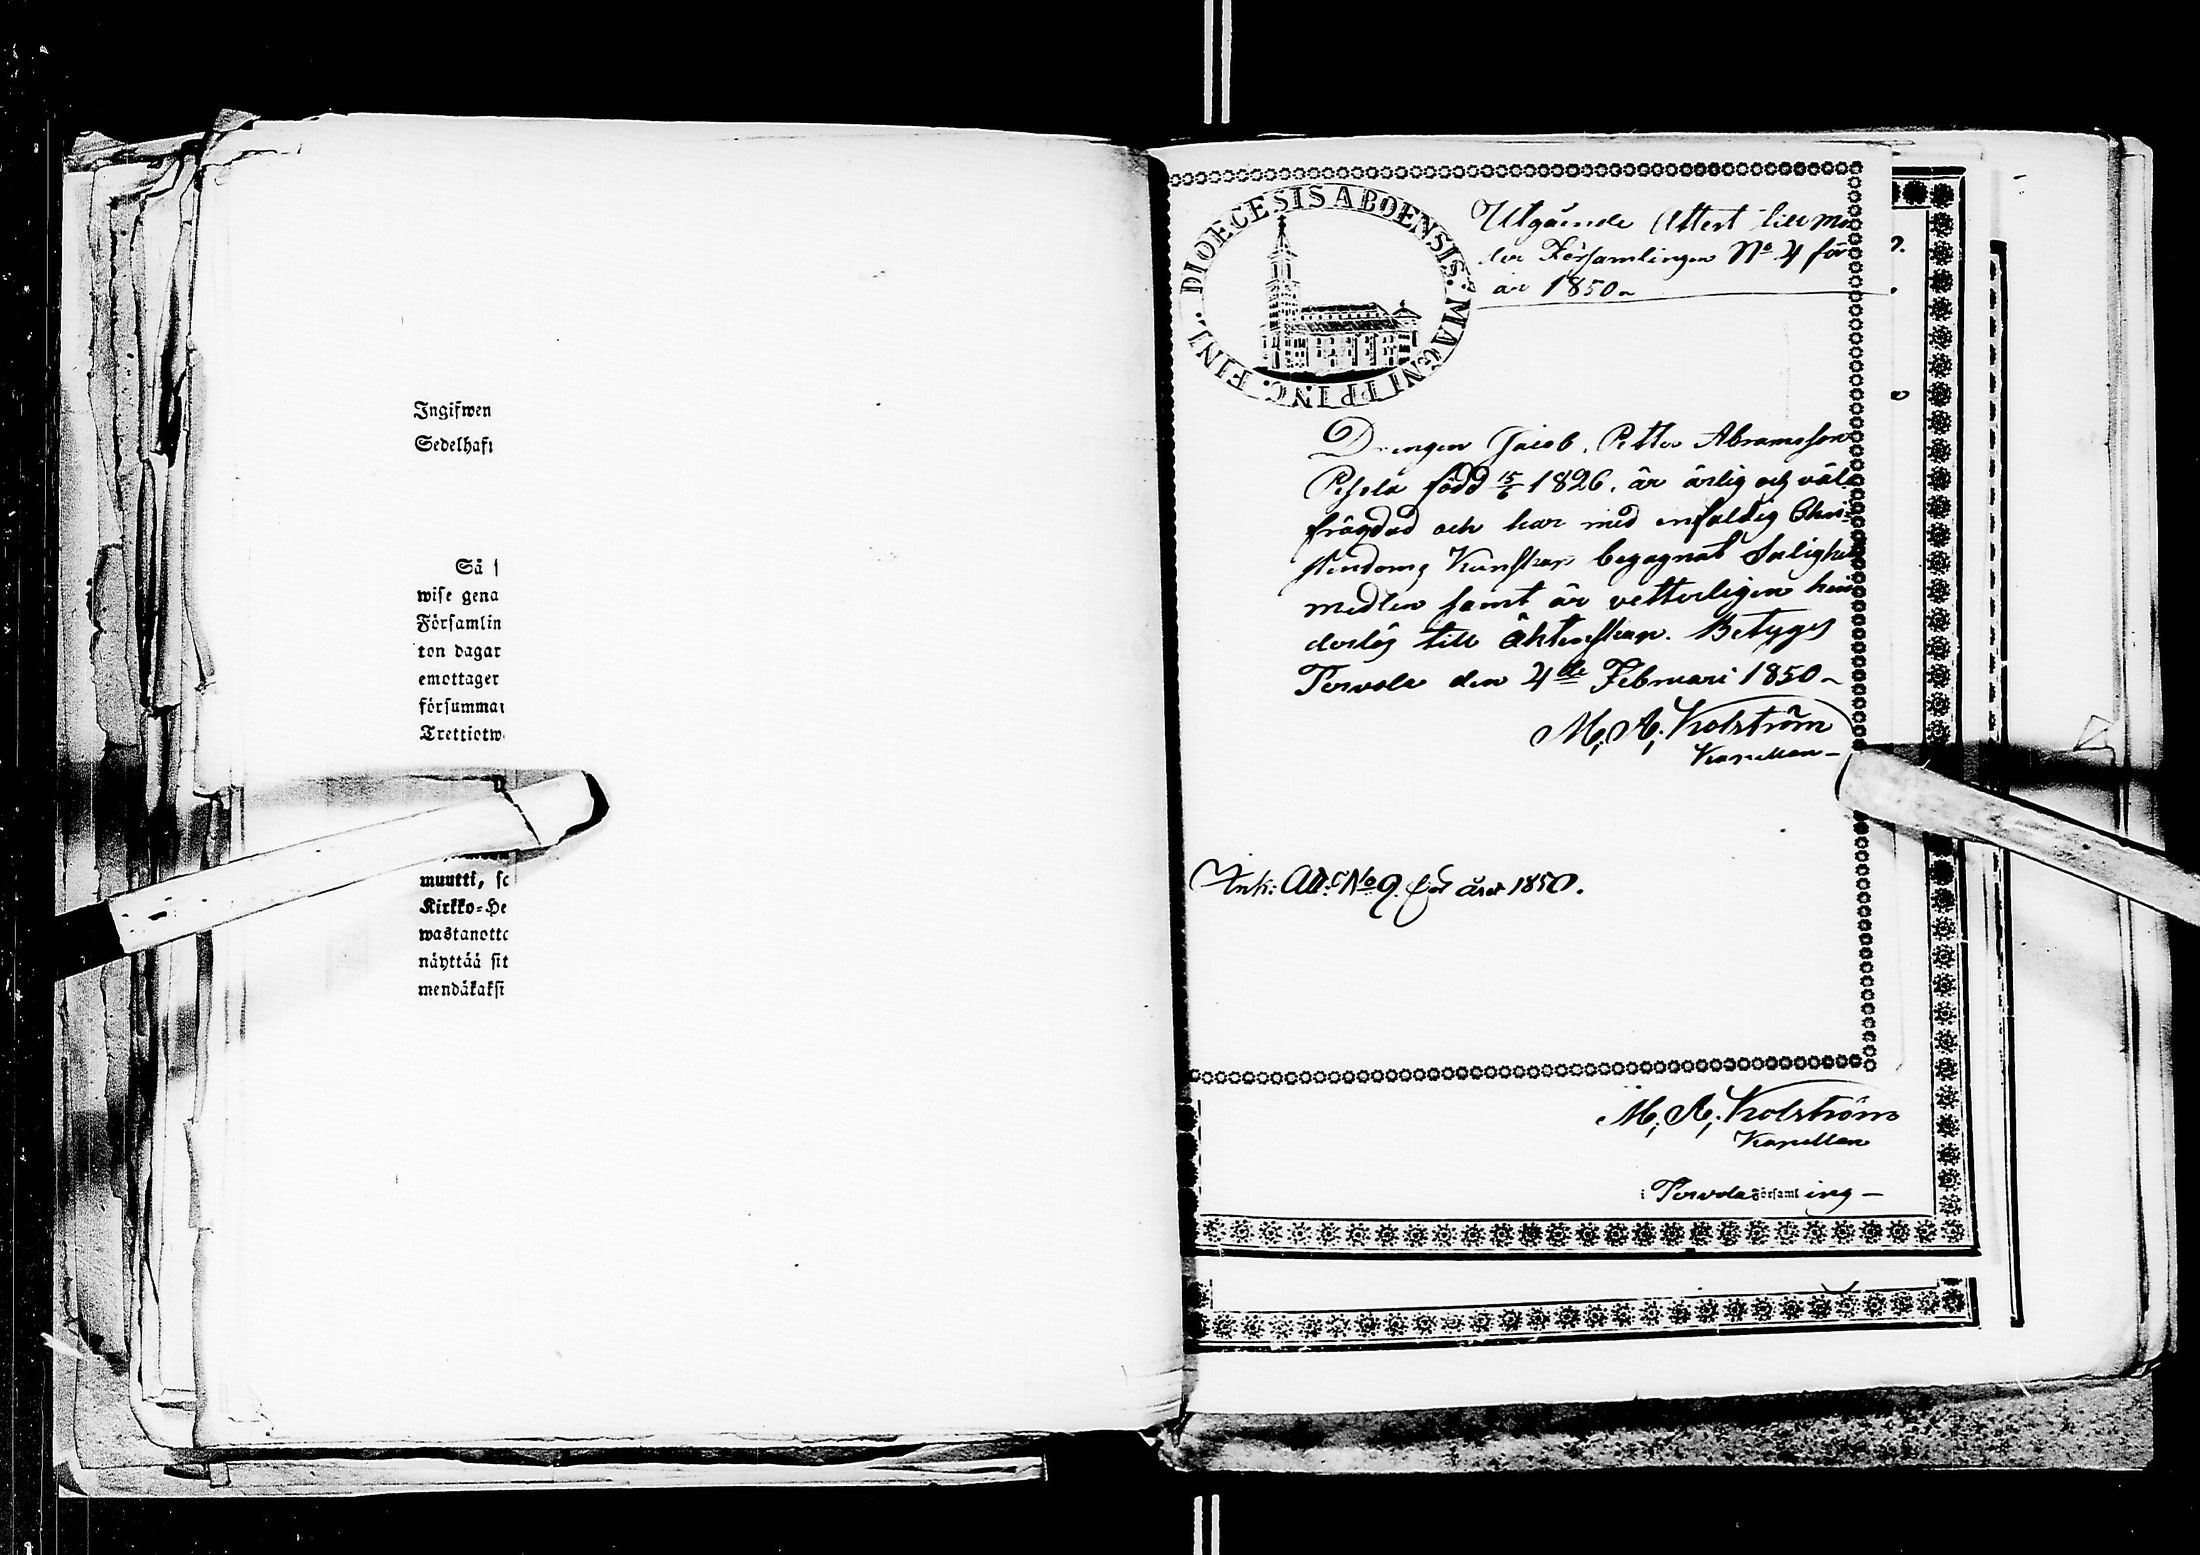 Ingifwen
Sedelhaft
Så f
wise gena
Församlin
ton dagar
emottager
försummat
Trettiotw
muutti, sc
Kirkko-He
wastanotto
näyttää sit
mendäkaksi
DIOECESIS ABOENSIS. MAGNI PRINC. FINL.
Utgående Attest till mo
der Församlingen No 4 för
år 1850~
Drengen Jacob Petter Abramsson
Pesola född 15/6 1826, är ärlig och väl
frägdad och har med enfaldig Chri-
stendoms Kunskap begagnat Salighets
medlen samt är vetterligen hin
derlös till äktenskap. Betyges
Tervola den 4de Februari 1850~
M. A. Holström
Kapellan-
Ank: Att: No 9. för året 1850.
M. A. Holström
Kapellan
i Tervola Församling-